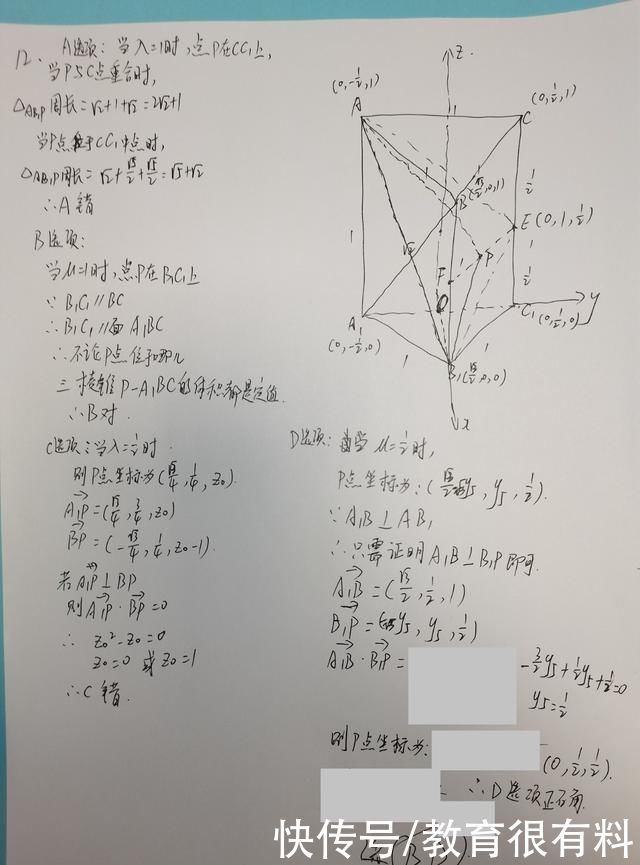 12. A选项: 当λ=1时,点P在CC₁上,
当P与C点重合时,
△AB₁P周长=√2+1+√2=2√2+1
当P点位于CC₁中点时,
△AB₁P周长=√2+√5/2+√5/2=√5+√2
∴A错
B选项:
当μ=1时,点P在B₁C₁上
∵B₁C₁//BC
∴B₁C₁//面A₁BC
∴不论P点位于哪儿
三棱锥P-A₁BC的体积都是定值.
∴B对.
C选项: 当λ=1/2时.
则P点坐标为(√3/4, 1/4, z₀).
A₁P=(√3/4, 3/4, z₀)
BP=(-√3/4, 1/4, z₀-1).
若A₁P⊥BP
则A₁P·BP=0
∴ z₀²-z₀=0
z₀=0 或z₀=1
∴C错.
z
(0,-1/2,1)
A
(0,1/2,1)
C
1
1/2
B(√3/2,0,1)
E(0,1,1/2)
1
√2
P
1
F
1
1/2
O
A₁
(0,-1/2,0)
C₁(0,1/2,0)
y
1
1
B₁(√3/2,0,0)
x
D选项: 当μ=1/2时,
∵A₁B⊥AB₁
∴只需证明A₁B⊥B₁P即可.
A₁B=(√3/2, 1/2, 1)
y₅, y₅, 1/2)
A₁B·B₁P=
-3/2y₅+1/2y₅+1/2=0
y₅=1/2
则P点坐标为:
(0,1/2,1/2).
∴D选项正确.
快传号/教育很有料